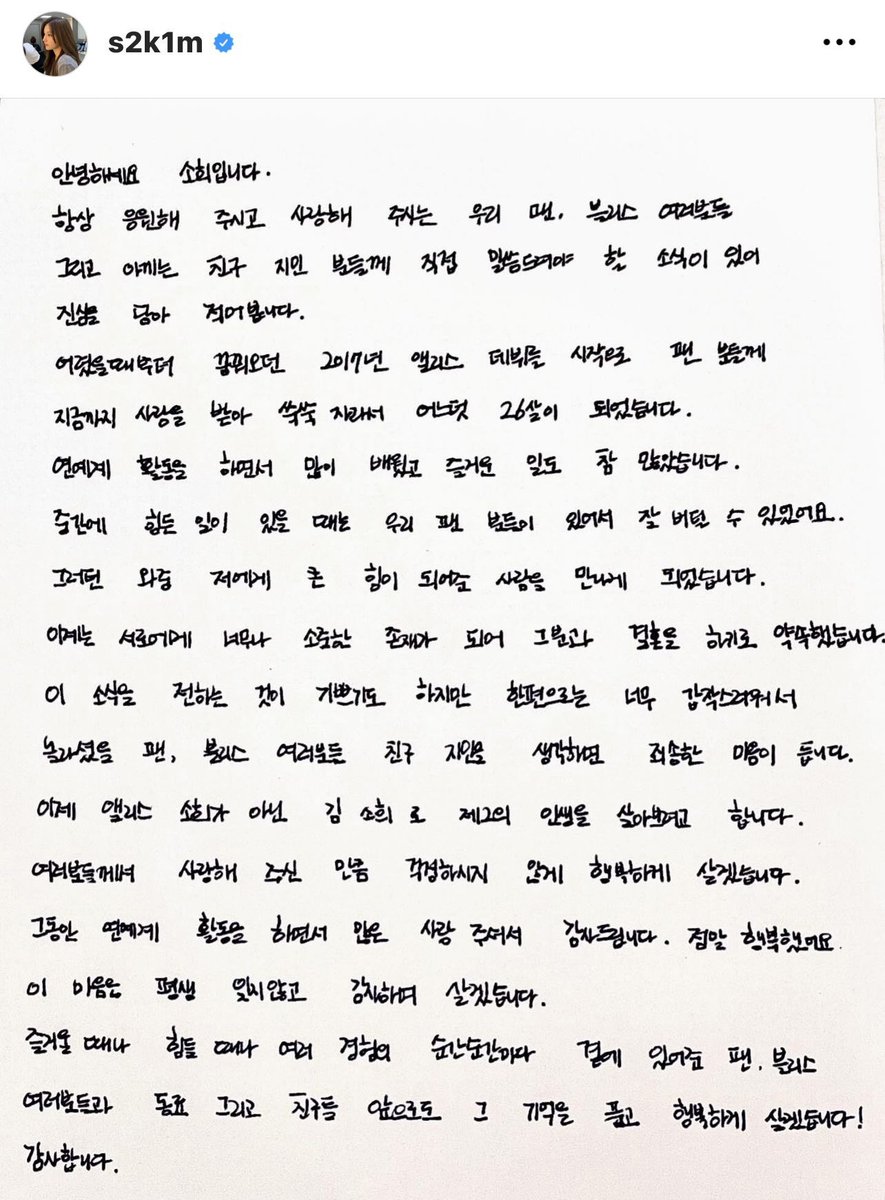 s2k1m
안녕하세요 소희입니다.
항상 응원해 주시고 사랑해 주시는 우리 팬, 블리스 여러분들
그리고 아끼는 친구 지인 분들께 직접 말씀드려야 할 소식이 있어
진심을 담아 적어봅니다.
어렸을때부터 꿈꿔오던 2017년 앨리스 데뷔를 시작으로 팬 분들께
지금까지 사랑을 받아 쑥쑥 자라서 어느덧 26살이 되었습니다.
연예계 활동을 하면서 많이 배웠고 즐거운 일도 참 많았습니다.
중간에 힘든 일이 있을 때는 우리 팬 분들이 있어서 잘 버틸 수 있었어요..
그러던 와중 저에게 큰 힘이 되어준 사람을 만나게 되었습니다.
이제는 서로에게 너무나 소중한 존재가 되어 그분과 결혼을 하기로 약속했습니다.
이 소식을 전하는 것이 기쁘기도 하지만 한편으로는 너무 갑작스러워서
놀라셨을 팬, 블리스 여러분들 친구 지인을 생각하면 죄송한 마음이 듭니다.
이제 앨리스 소희가 아닌 김소희로 제2의 인생을 살아보려고 합니다.
여러분들께서 사랑해 주신 만큼 걱정하시지 않게 행복하게 살겠습니다.
그동안 연예계 활동을 하면서 많은 사랑 주셔서 감사드립니다. 정말 행복했어요
이 마음은 평생 잊지않고 감사하며 살겠습니다.
즐거울 때나 힘들 때나 여러 경험의 순간순간마다 곁에 있어준 팬, 블리스
여러분들과 동료 그리고 친구들 앞으로도 그 기억을 품고 행복하게 살겠습니다!
감사합니다.